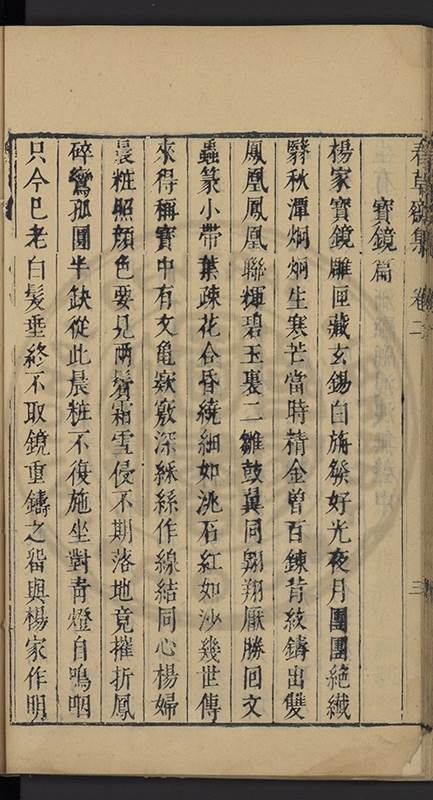 春草齋集 卷二 三
寶鏡篇
楊家寶鏡雕匣藏玄錫白旃發好光夜月團團絶纎
翳秋潭炯炯生寒芒當時精金曾百鍊背紋鑄出雙
鳳凰鳳凰聯輝碧玉裏二雛鼓翼同翺翔厭勝回文
蟲篆小帶葉疎花合昏繞細如洮石紅如沙幾世傳
來得稱寶中有文龜窽竅深綵絲作線結同心楊婦
晨粧照顔色要見兩鬢霜雪侵不期落地竟摧折鳳
碎鸞孤圓半缺從此晨粧不復施坐對青燈自鳴咽
只今巳老白髮垂終不取鏡重鑄之畱與楊家作明